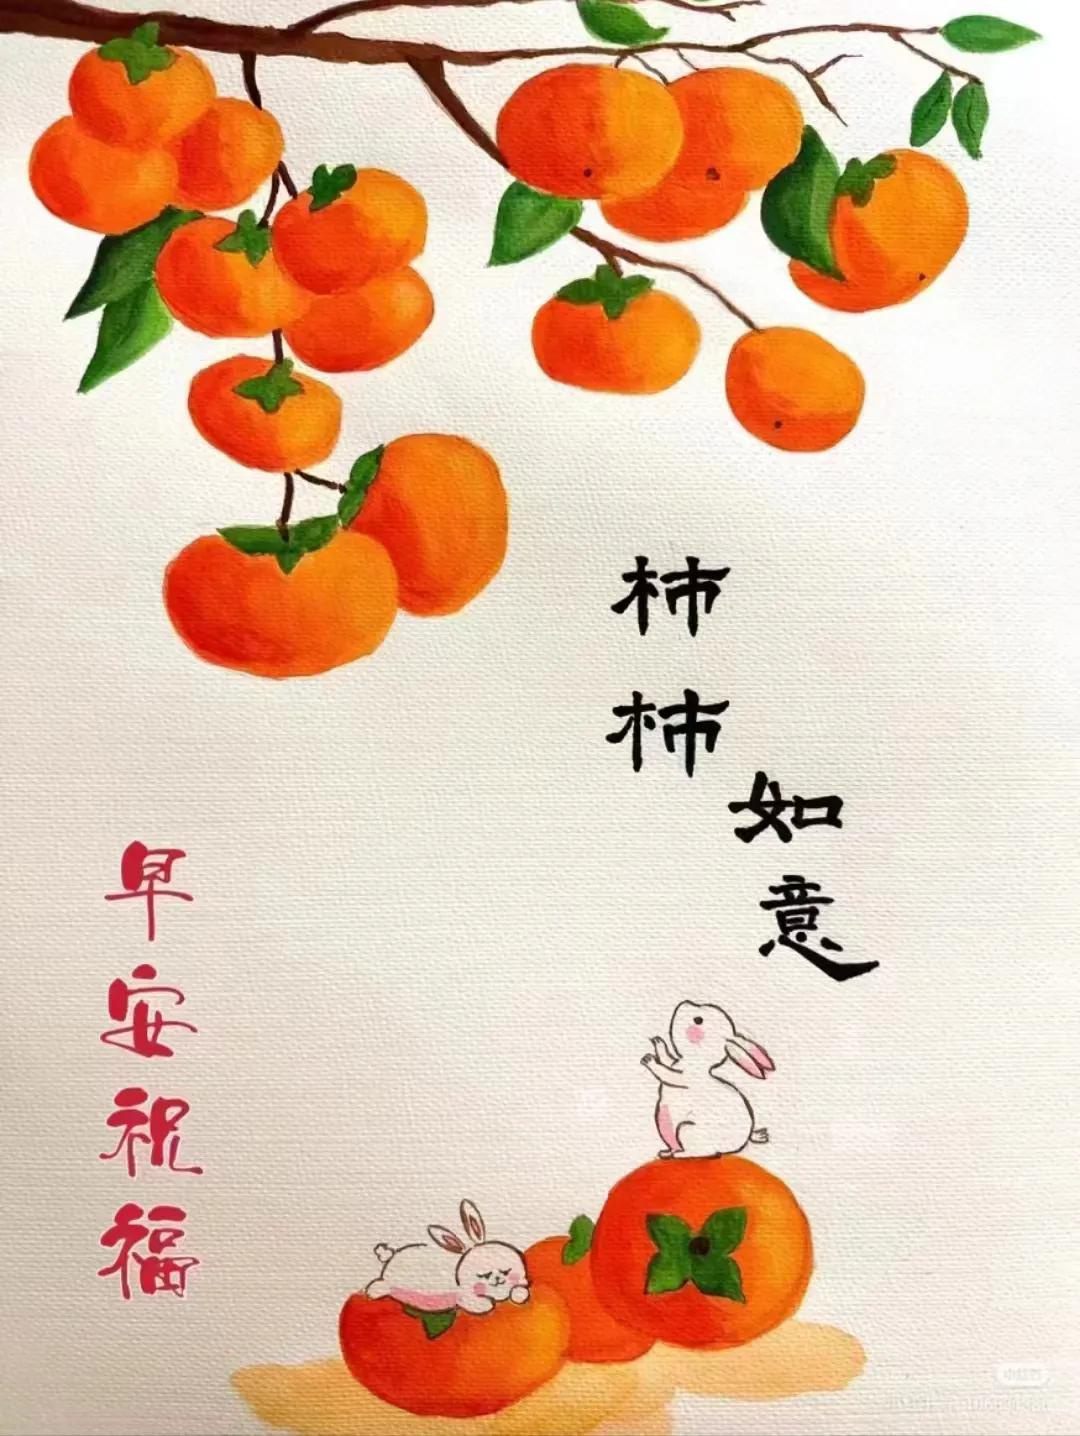 柿
柿
如
意
早
安
祝
福